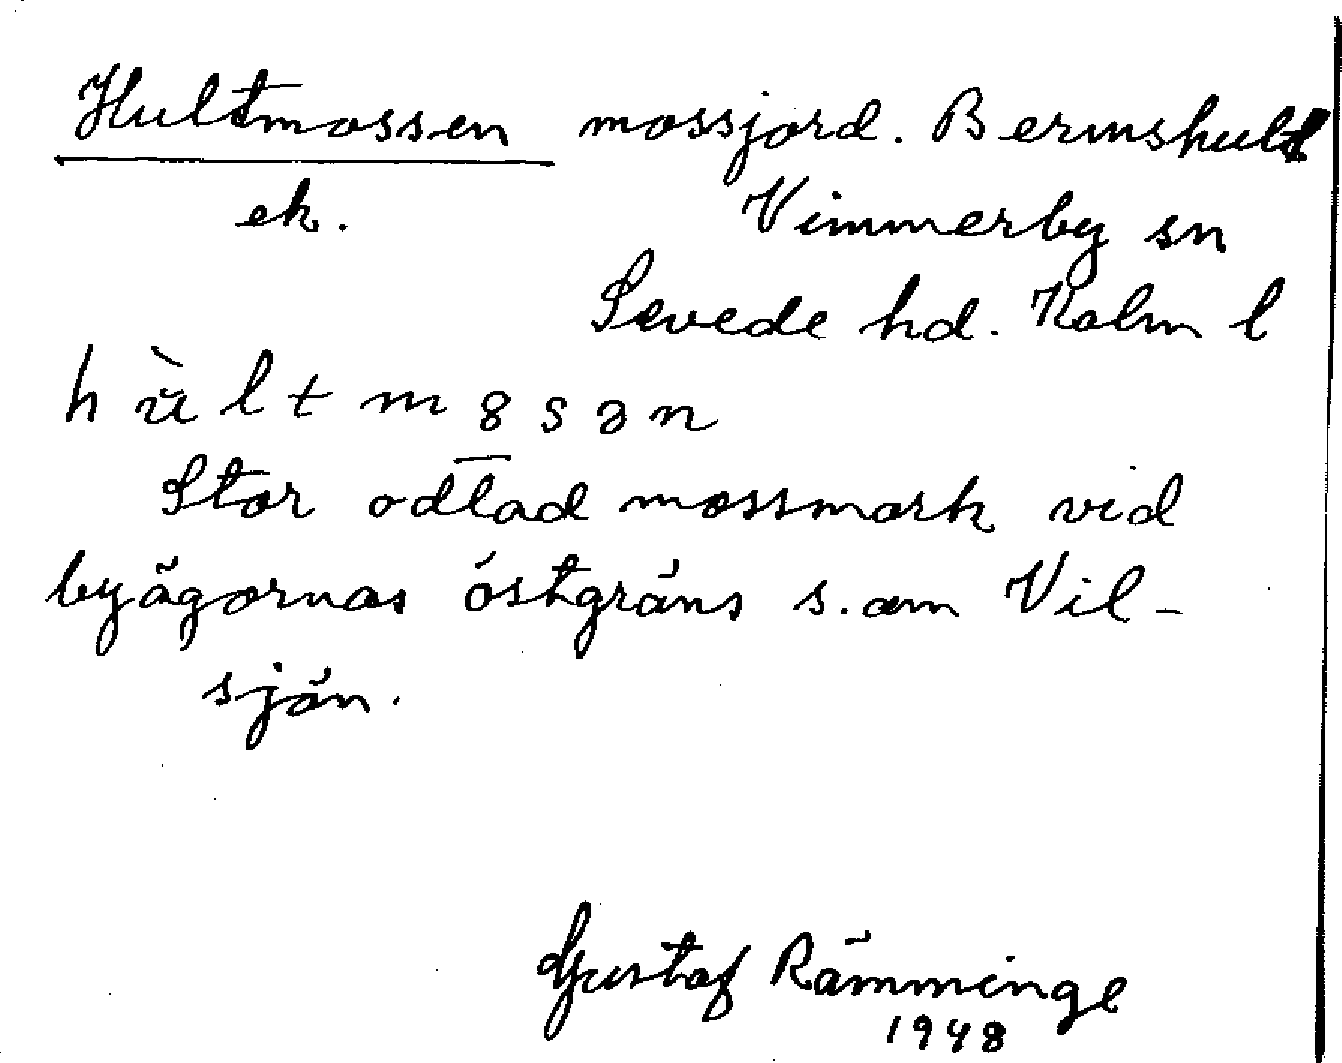 Hultmossen mossjord. Bermshult
ek. Vimmerby sn
Sevede hd. Kalm l
hùltm8sən
Stor odlad mossmark vid
byägornas östgräns s.om Vil-
sjön.
Gustaf Rämminge
1948